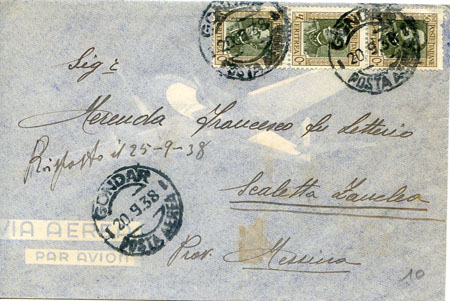 GONDAR
20.9.38
POSTA AEREA
ERITREA
ERITREA
GONDAR
20.9.38
POSTA AEREA
Sig.r
Merenda Francesco fu Letterio
Risposto il 25-9-38
GONDAR
20.9.38
POSTA AEREA
Scaletta Zanclea
VIA AEREA
PAR AVION
Prov. Messina
10